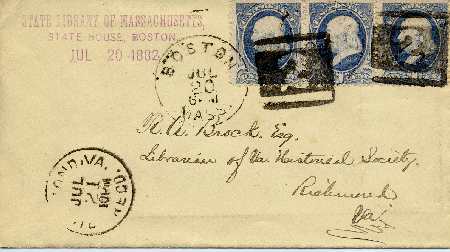 STATE LIBRARY OF MASSACHUSETTS,
STATE HOUSE, BOSTON,
JUL 20 1882
BOSTON
JUL
20
MASS.
R. A. Brock, Esq.
Librarian of Va. Historical Society,
Richmond
Va.
MOND, VA.
JUL
12
10AM
REC'D